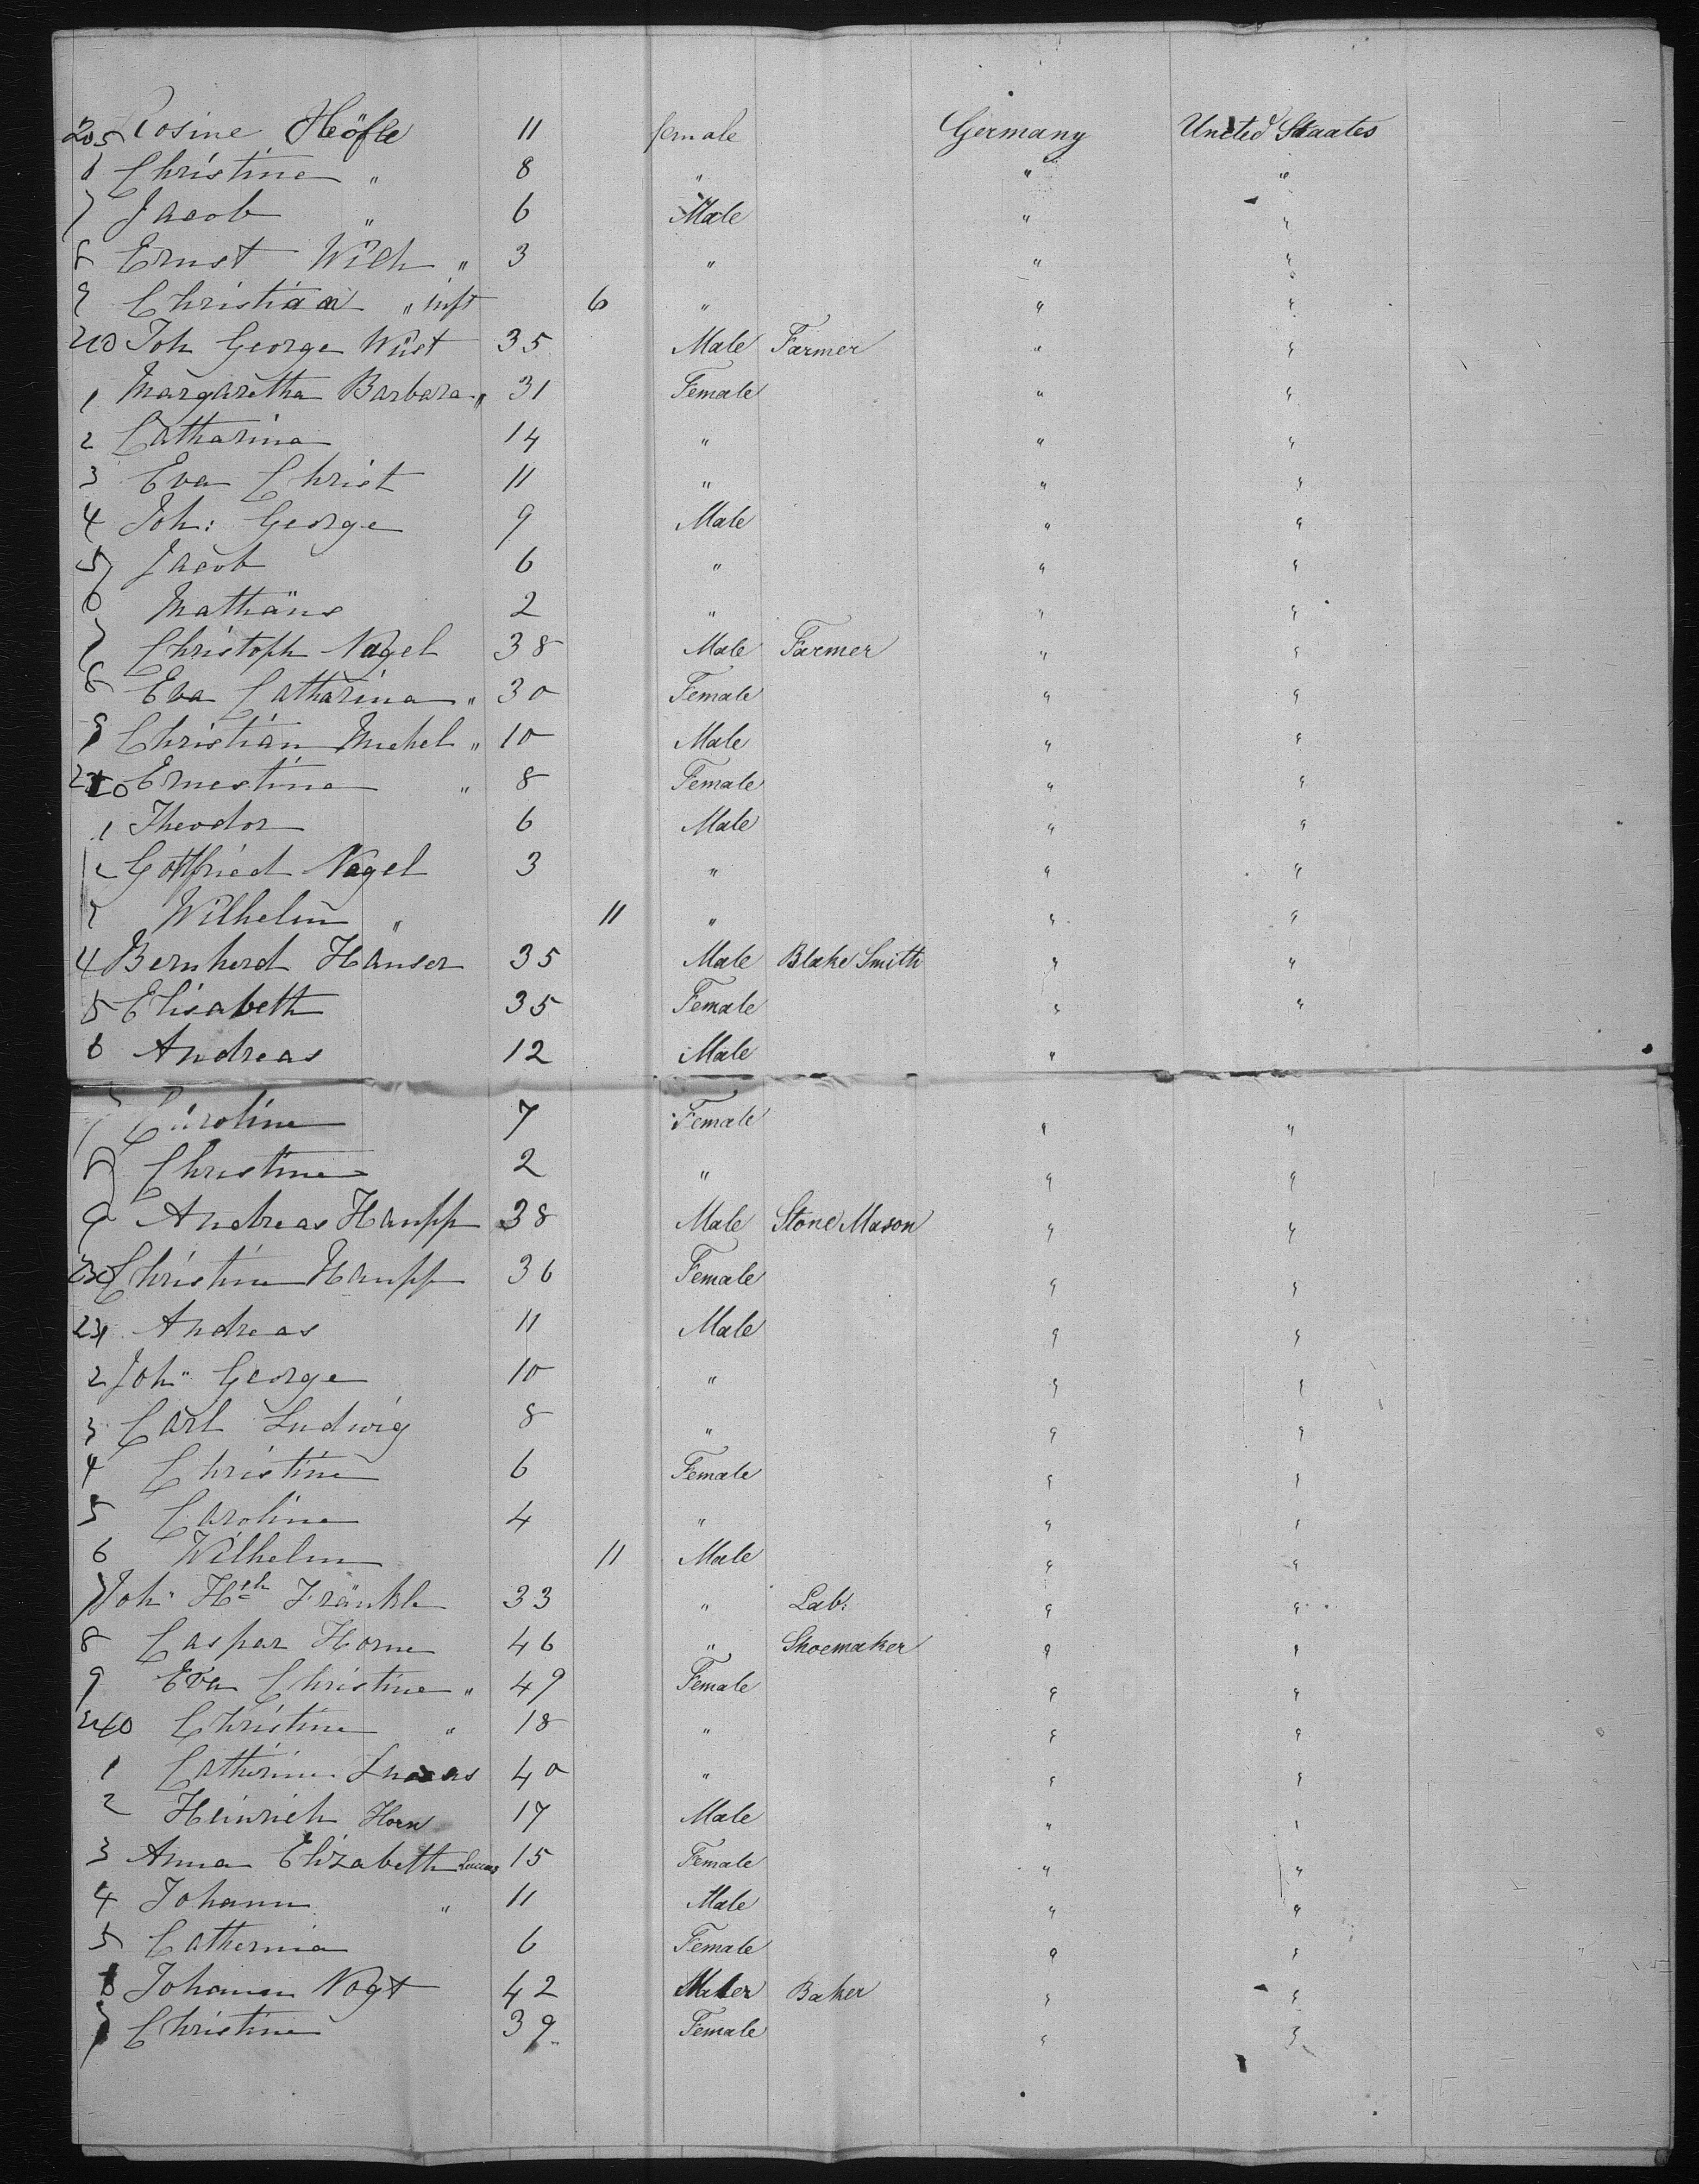 205 Rosine Höfle 11 female Germany United Staates
6 Christine " 8 " " "
7 Jacob " 6 Male " "
8 Ernst Wilh " 3 " " "
9 Christian " inft 6 " " "
210 Joh George Wüst 35 Male Farmer " "
1 Margaretha Barbara " 31 Female " "
2 Catharina 14 " " "
3 Eva Christ 11 " " "
4 Joh: George 9 Male " "
5 Jacob 6 " " "
6 Mathäus 2 " " "
7 Christoph Nagel 38 Male Farmer " "
8 Eva Catharina " 30 Female " "
9 Christian Michel " 10 Male " "
220 Ernestine " 8 Female " "
1 Theodor 6 Male " "
2 Gottfried Nagel 3 " " "
3 Wilhelm " 11 " " "
4 Bernherd Hauser 35 Male Blake Smith " "
5 Elisabeth 35 Female " "
6 Andreas 12 Male "
7 Caroline 7 Female " "
8 Christine 2 " " "
9 Andreas Haupp 38 Male Stone Mason " "
230 Christine Haupp 36 Female " "
231 Andreas 11 Male " "
2 Joh" George 10 " " "
3 Carl Ludwig 8 " " "
4 Christine 6 Female " "
5 Caroline 4 " " "
6 Wilhelm 11 Male " "
7 Joh" Hch Fränkle 33 " Lab: " "
8 Caspar Horne 46 " Shoemaker " "
9 Eva Christine " 49 Female " "
240 Christine " 18 " " "
1 Catherine 40 " " "
2 Heinrich Horn 17 Male " "
3 Anna Elizabeth Luccas 15 Female " "
4 Johann " 11 Male " "
5 Catherina 6 Female " "
6 Johann Vogt 42 Male Baker " "
7 Christine 39 Female " "